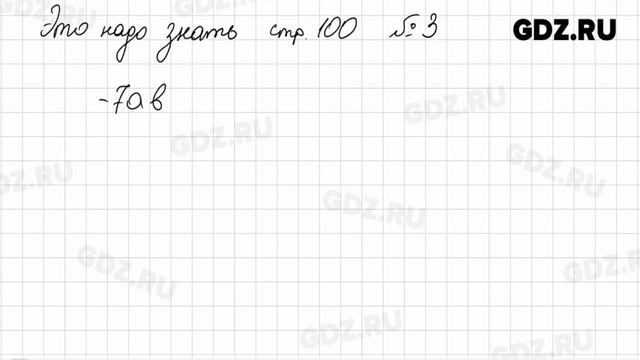 Это надо знать стр. 100 № 3 GDZ.RU
-7ав
GDZ.RU
GDZ.RU
GDZ.RU
GDZ.RU
GDZ.RU
GDZ.RU
GDZ.RU
GDZ.RU
GDZ.RU
GDZ.RU